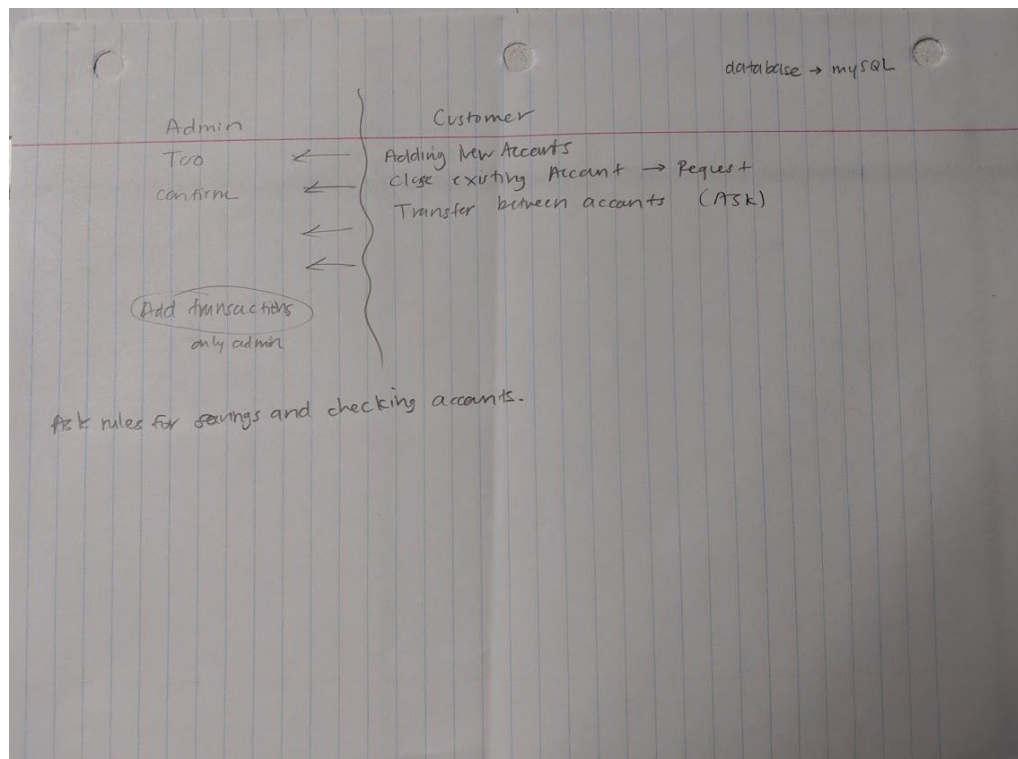 database → mySQL
Admin
Too
confirm
Add transactions
only admin
Customer
Adding New Accounts
Close existing Account → Request
Transfer between accounts (ASK)
Ask rules for savings and checking accounts.